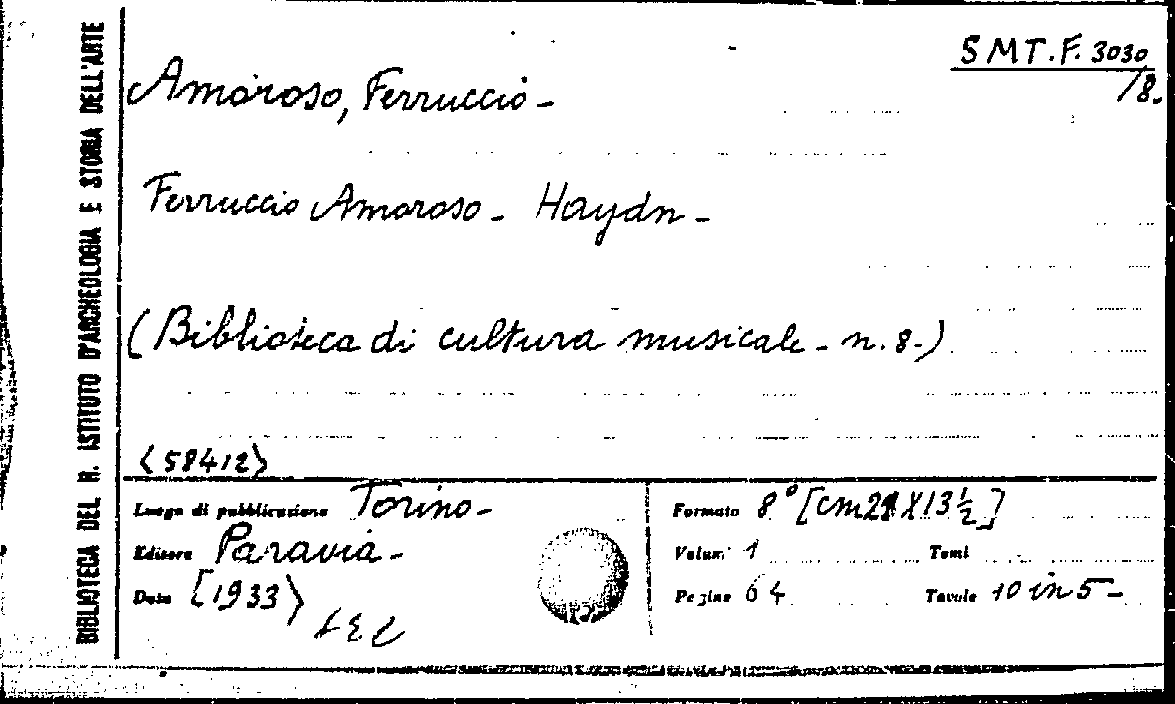 BIBLIOTECA DEL R. ISTITUTO D'ARCHEOLOGIA E STORIA DELL'ARTE
SMT.F. 3030
/8.
Amoroso, Ferruccio -
Ferruccio Amoroso - Haydn -
(Biblioteca di cultura musicale - n. 8-)
<58412>
Luogo di pubblicazione Torino -
Editore Paravia -
Data [1933>
Formato 8° [cm 21 X 13 ½]
Volumi 1 Tomi
Pagine 64 Tavole 10 in 5 -